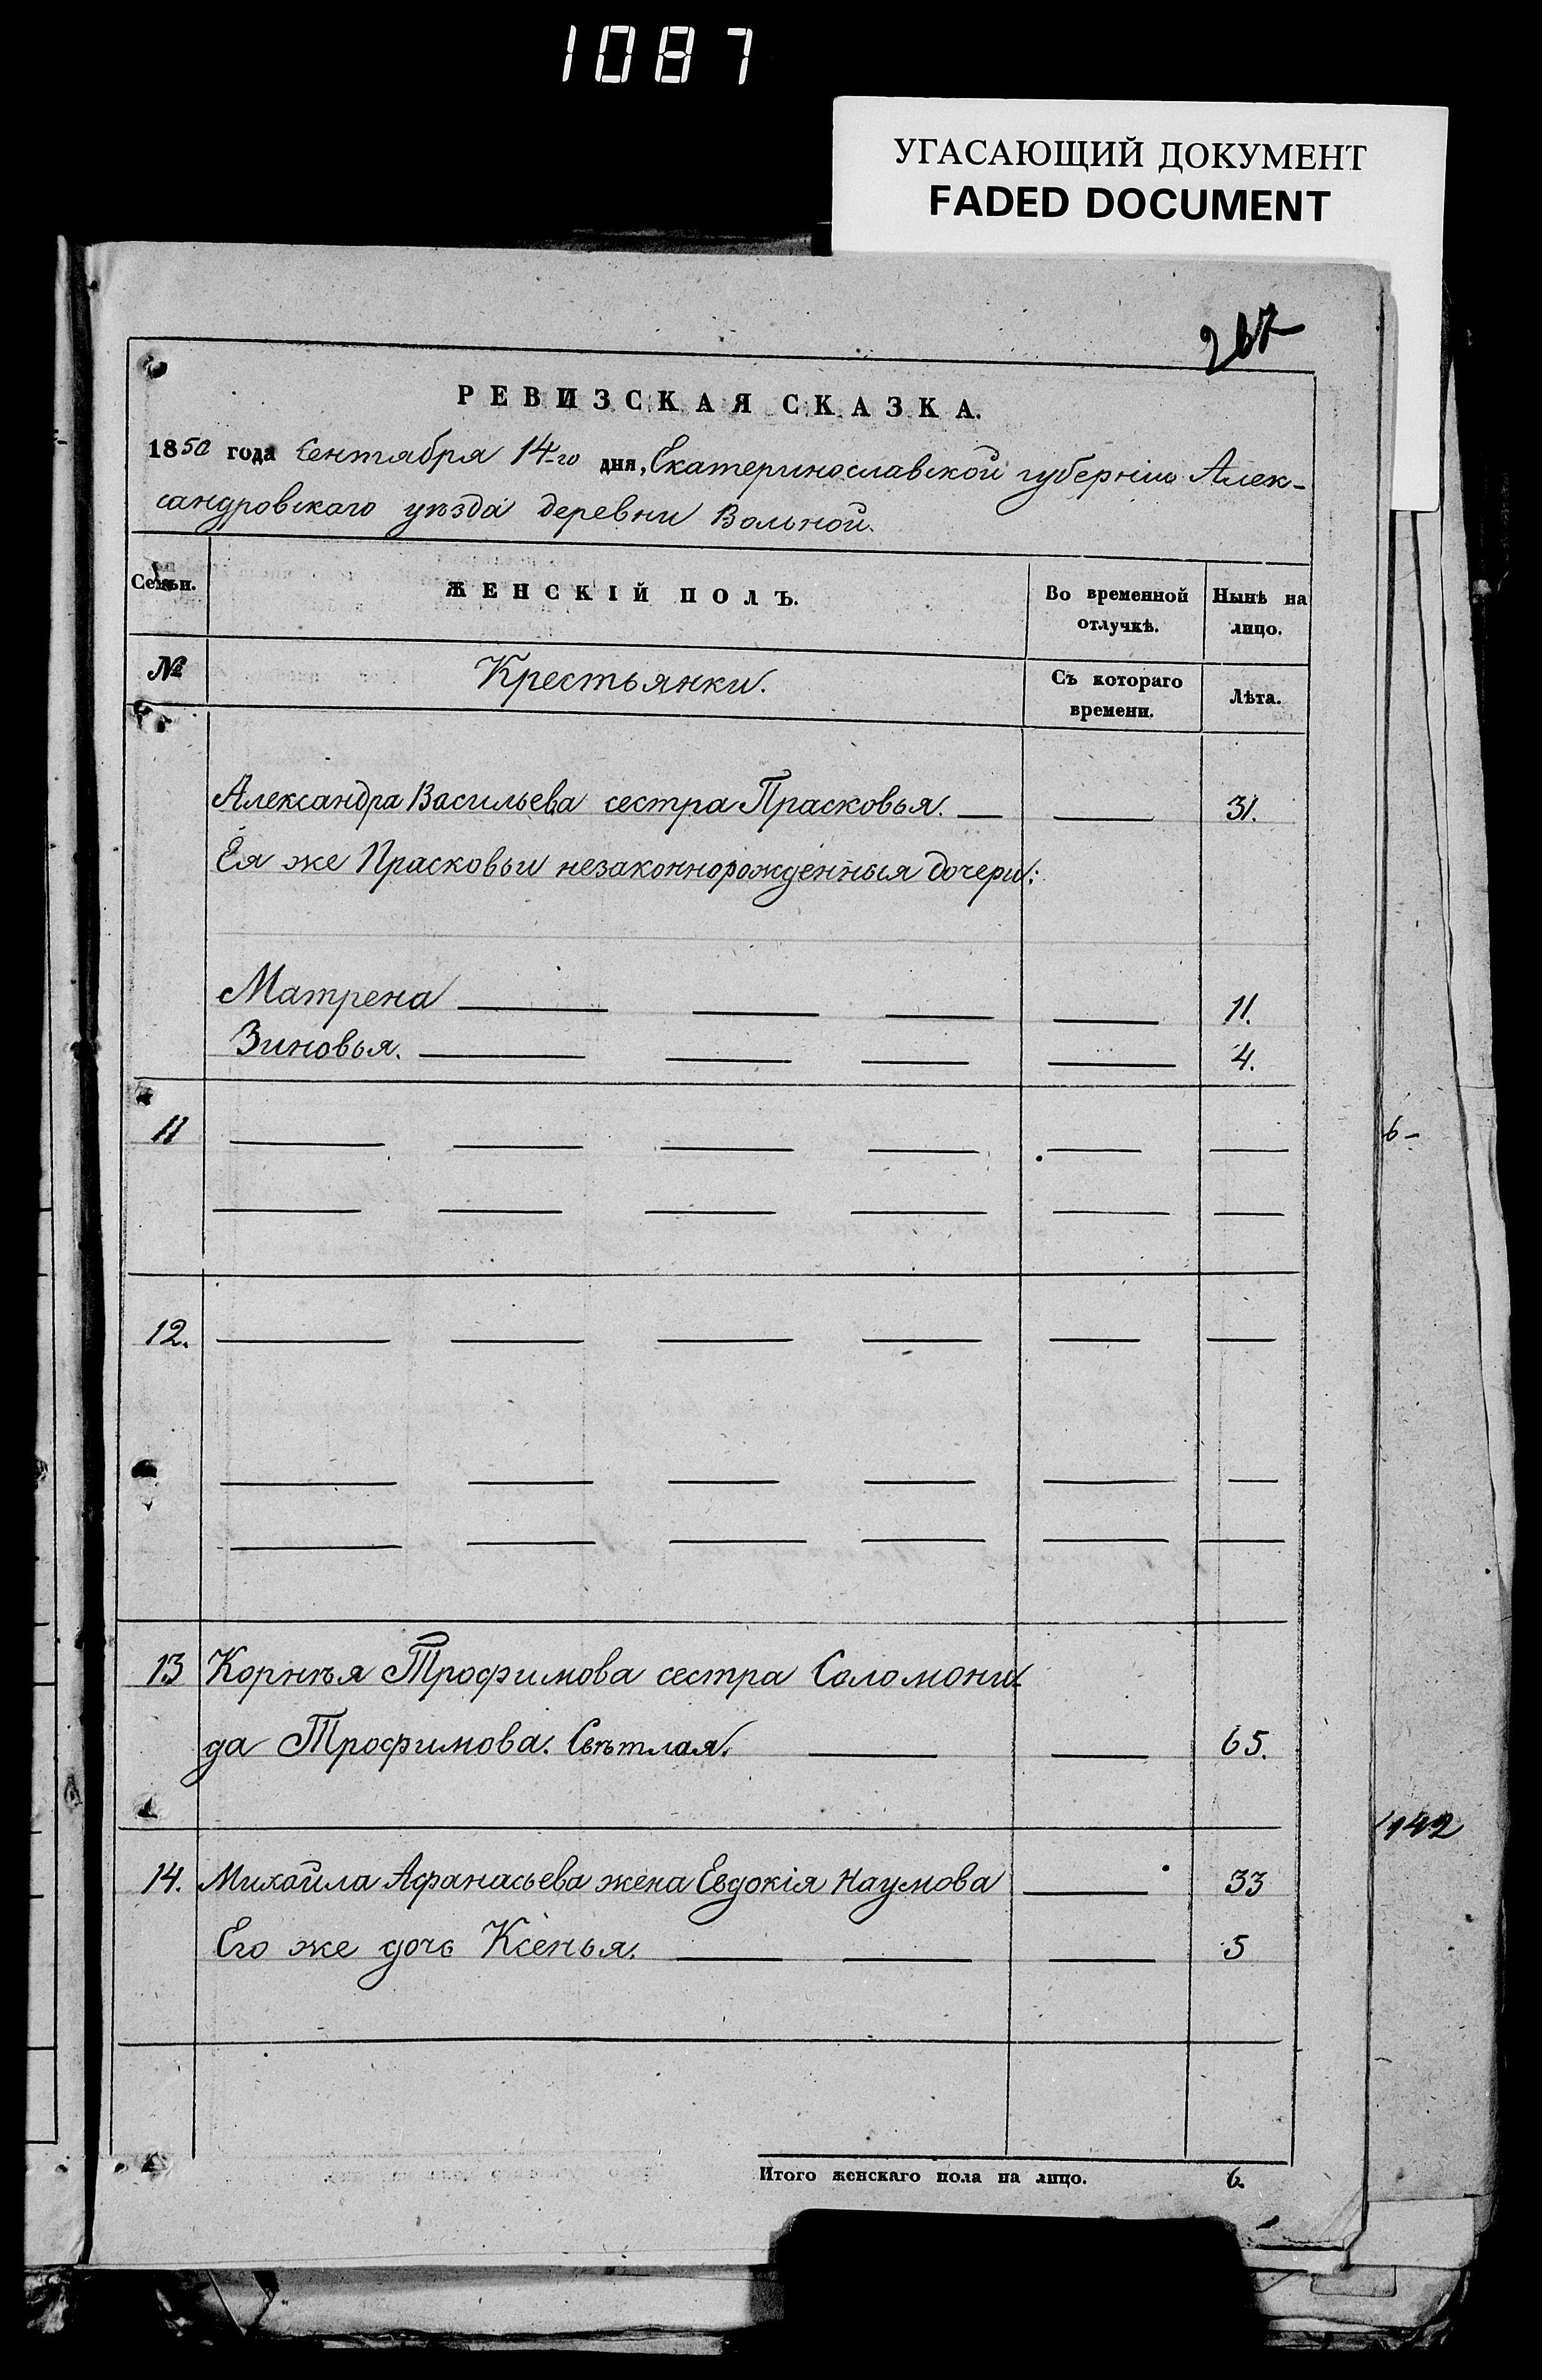 1087
УГАСАЮЩИЙ ДОКУМЕНТ
FADED DOCUMENT
267
РЕВИЗСКАЯ СКАЗКА.
1850 года Сентября 14-го дня, Екатеринославской губерніи Алек-
сандровскаго уѣзда деревни Вольной.
Семьи. ЖЕНСКІЙ ПОЛЪ. Во временной отлучкѣ. Нынѣ на лицо.
№ Крестьянки. Съ котораго времени. Лѣта.
Александра Васильева сестра Прасковья. — — 31.
Ея же Прасковьи незаконнорожденныя дочери:
Матрена — — — — 11.
Зиновья. — — — — 4.
11 — — — — — —
— — — — — —
12. — — — — — —
— — — — — —
— — — — — —
13 Корнѣя Трофимова сестра Соломони-
да Трофимова. Свѣтлая. — — 65.
14. Михайла Афанасьева жена Евдокія Наумова — 33
Его же дочь Ксенья. — — — 5
Итого женскаго пола на лицо. 6.
6 –
142